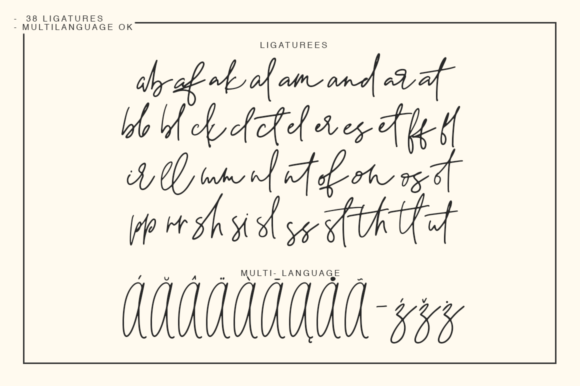 - 38 LIGATURES
- MULTILANGUAGE OK
LIGATUREES
ab af ak al am and ar at
bb bl ck cl ct el er es et ff fl
ir ll mm nl nt of oh os ot
pp rr sh si sl ss st th tt ut
MULTI- LANGUAGE
Á Ă Â Ä À Ā Ą Å Ã - ź ž ż